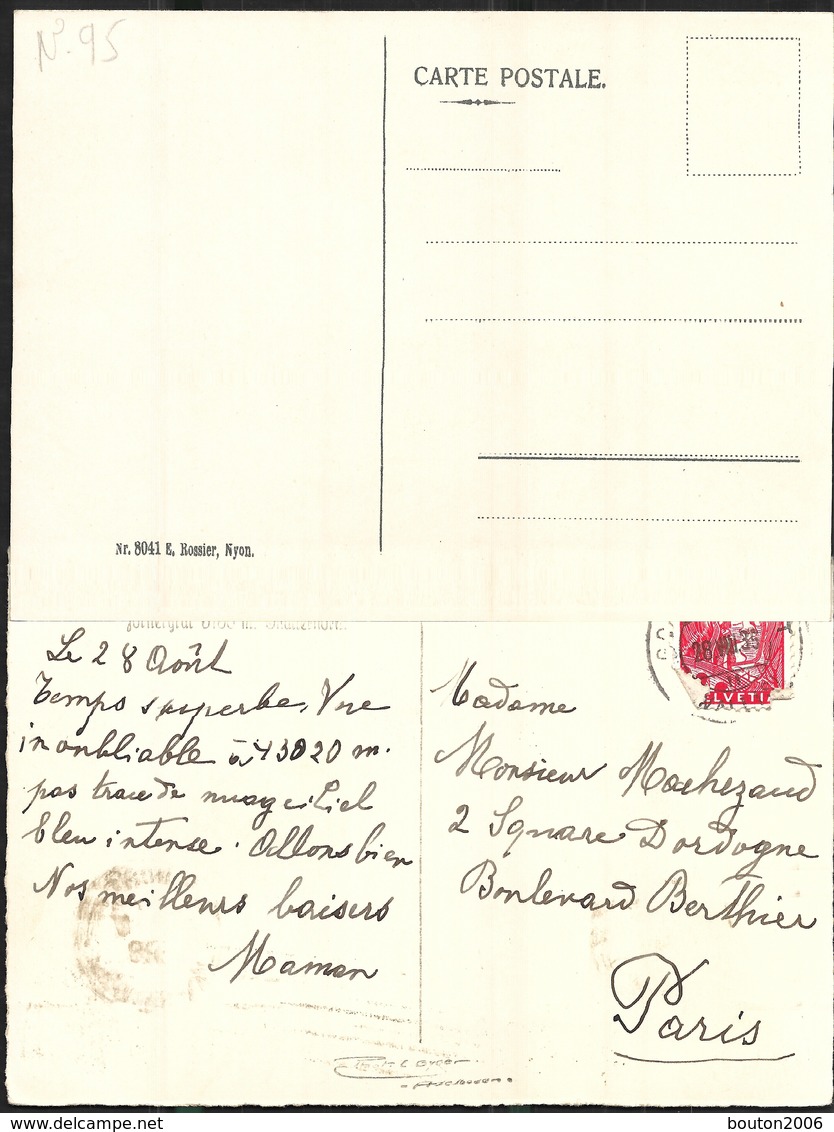 N° 95
CARTE POSTALE.
Nr. 8041 E. Rossier, Nyon.
Le 28 Août
Temps superbe, Vue
inoubliable à 3020 m.
pas trace de nuage Ciel
bleu intense. Allons bien
Nos meilleurs baisers
Maman
HELVETI
Madame
Monsieur Machezaud
2 Square Dordogne
Boulevard Berthier
Paris
bouton2006